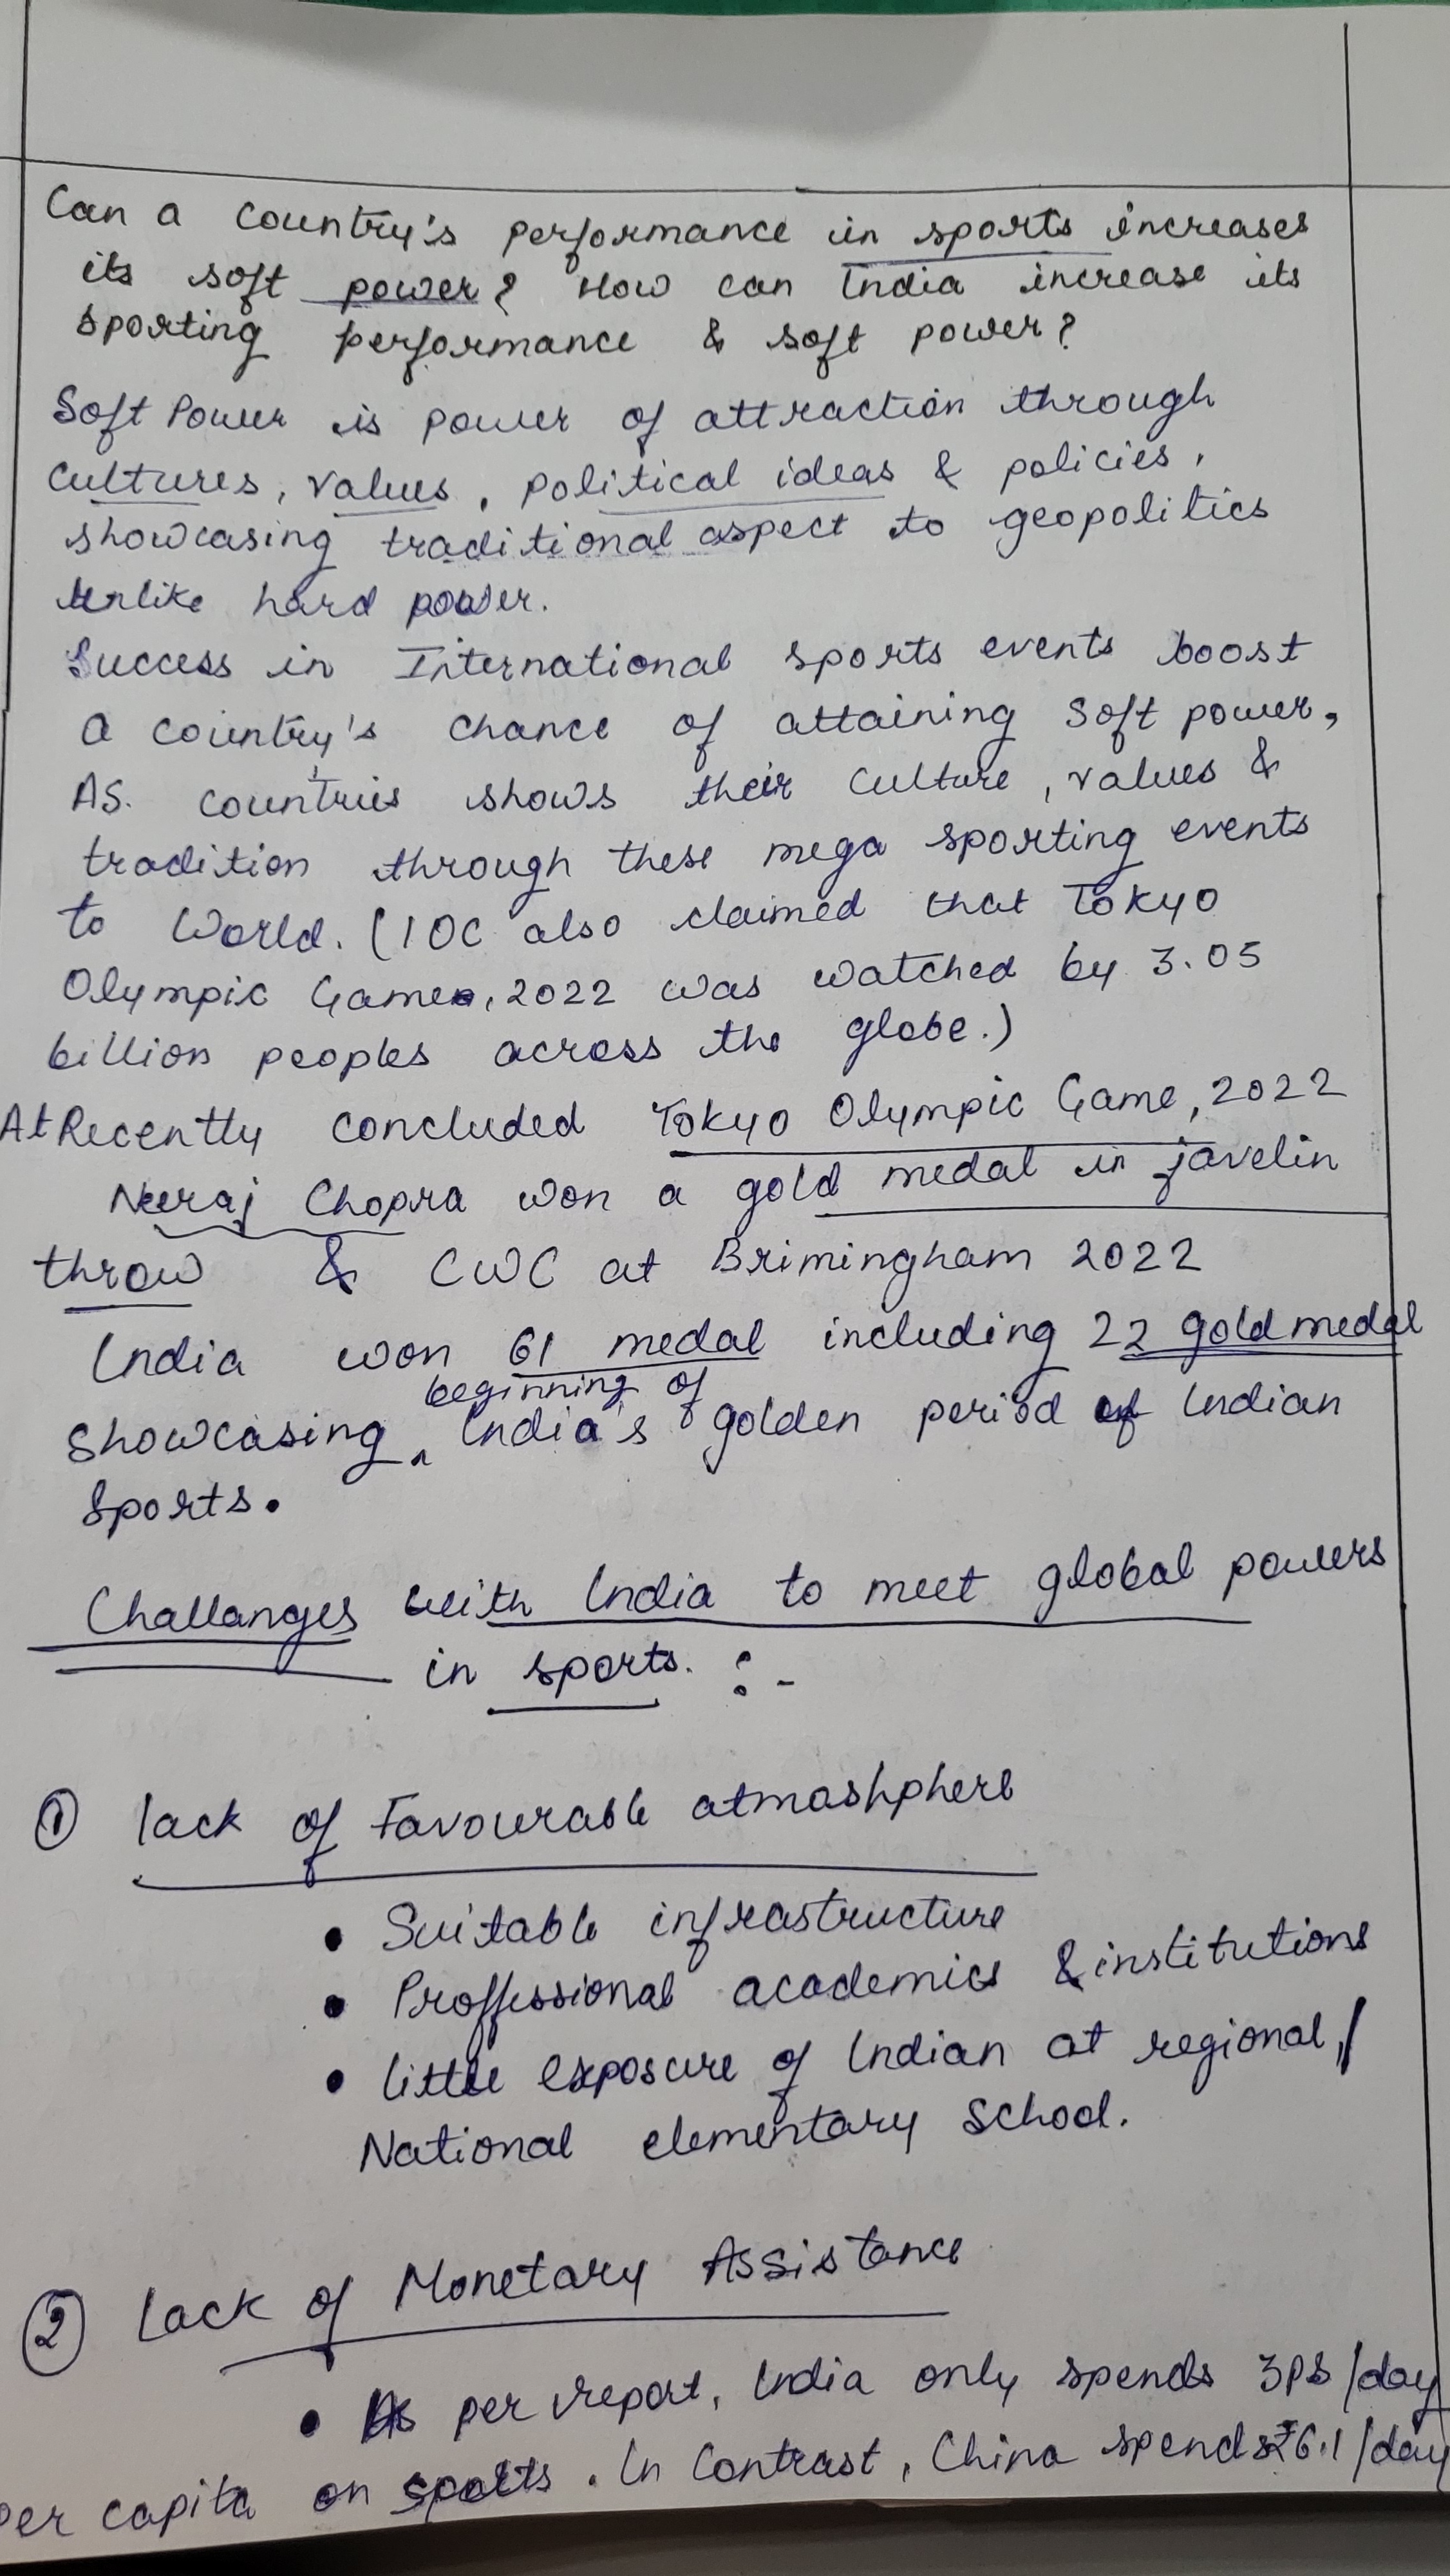 Can a country's performance in sports increases
its soft power? How can India increase its
sporting performance & soft power?
Soft Power is power of attraction through
cultures, values, political ideas & policies,
showcasing traditional aspect to geopolitics
unlike hard power.
Success in International sports events boost
a country's chance of attaining soft power,
As countries shows their culture, values &
tradition through these mega sporting events
to World. (IOC also claimed that Tokyo
Olympic Games, 2022 was watched by 3.05
billion peoples across the globe.)
At Recently concluded Tokyo Olympic Game, 2022
Neeraj Chopra won a gold medal in javelin
throw & CWC at Brimingham 2022
India won 61 medal including 22 gold medal
beginning of
showcasing India's golden period of Indian
sports.
Challanges with India to meet global powers
in sports. :-
① lack of Favourable atmashphere
• Suitable infrastructure
• Proffessional academics & institutions
• little exposure of Indian at regional/
National elementary school.
② Lack of Monetary Assistance
• As per report, India only spends 3ps/day
per capita on sports. In Contrast, China spends ₹6.1/day